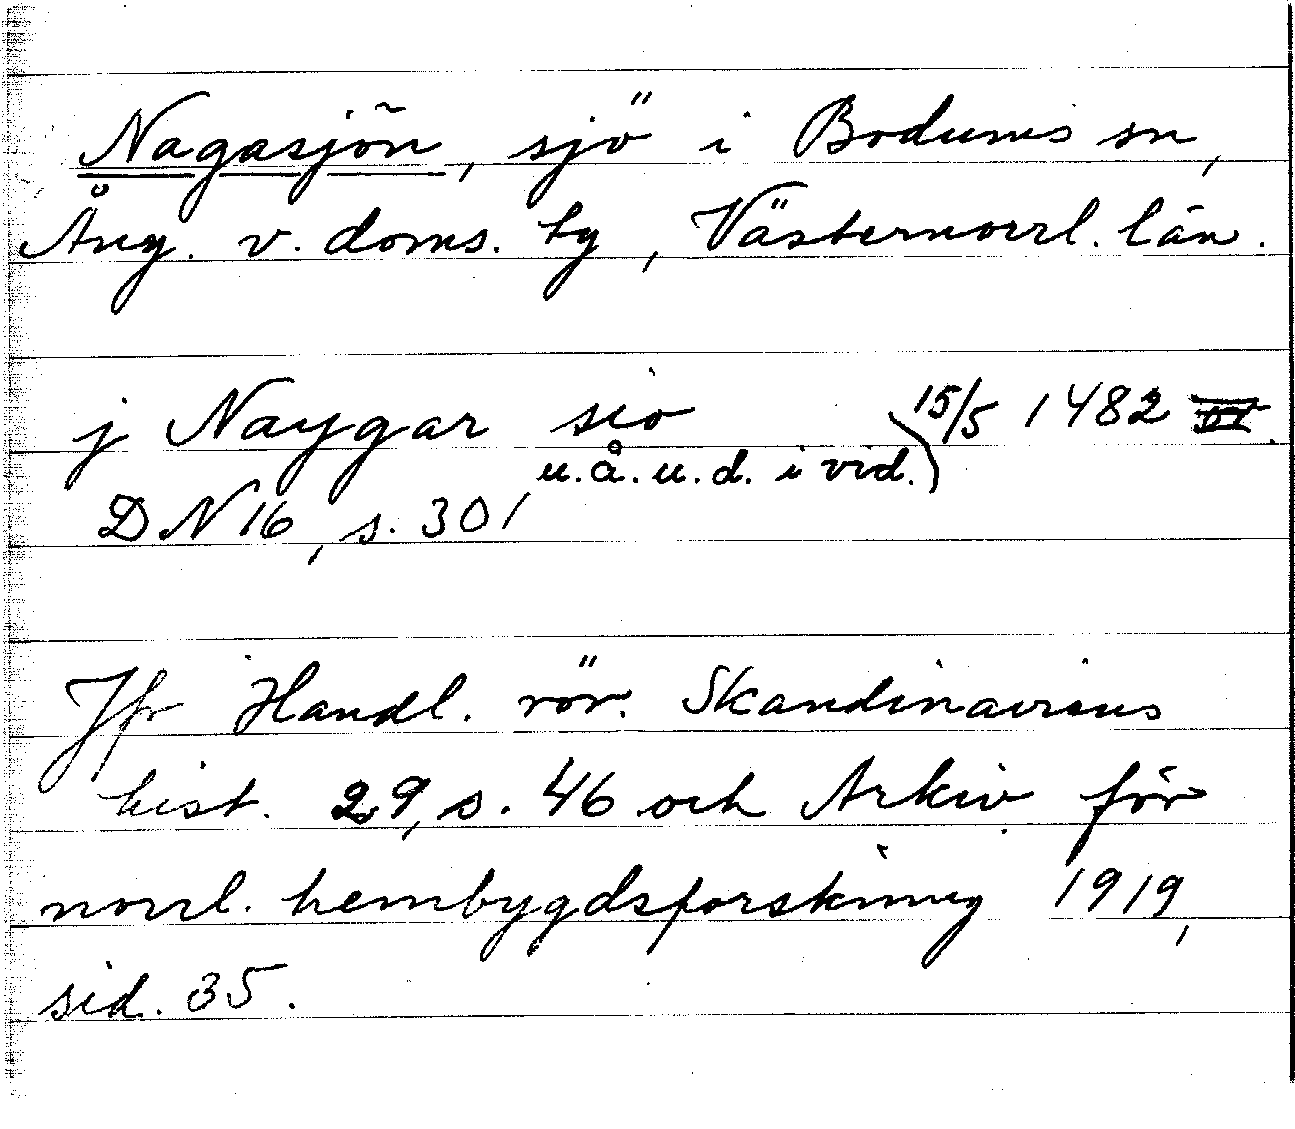 Nagasjön, sjö i Bodums sn,
Ång. v. doms. tg, Västernorrl. län.
j Naygar sio 15/5 1482
u.å.u.d. i vid.)
DN 16, s. 301
Jfr Handl. rör. Skandinaviens
hist. 29, s. 46 och Arkiv för
norrl. hembygdsforskning 1919,
sid. 35.